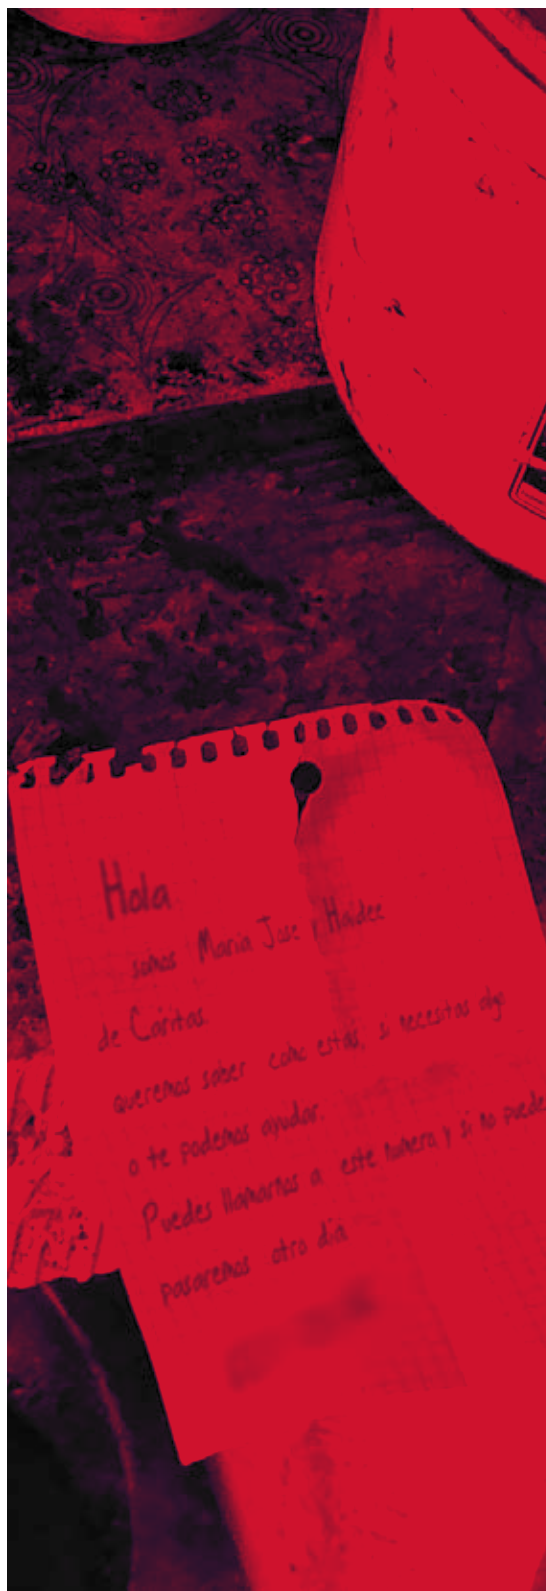 Hola
somos Maria Jose y Haidee
de Caritas.
queremos saber como estas, si necesitas algo
o te podemos ayudar.
Puedes llamarnos a este numero y si no puede
pasaremos otro dia